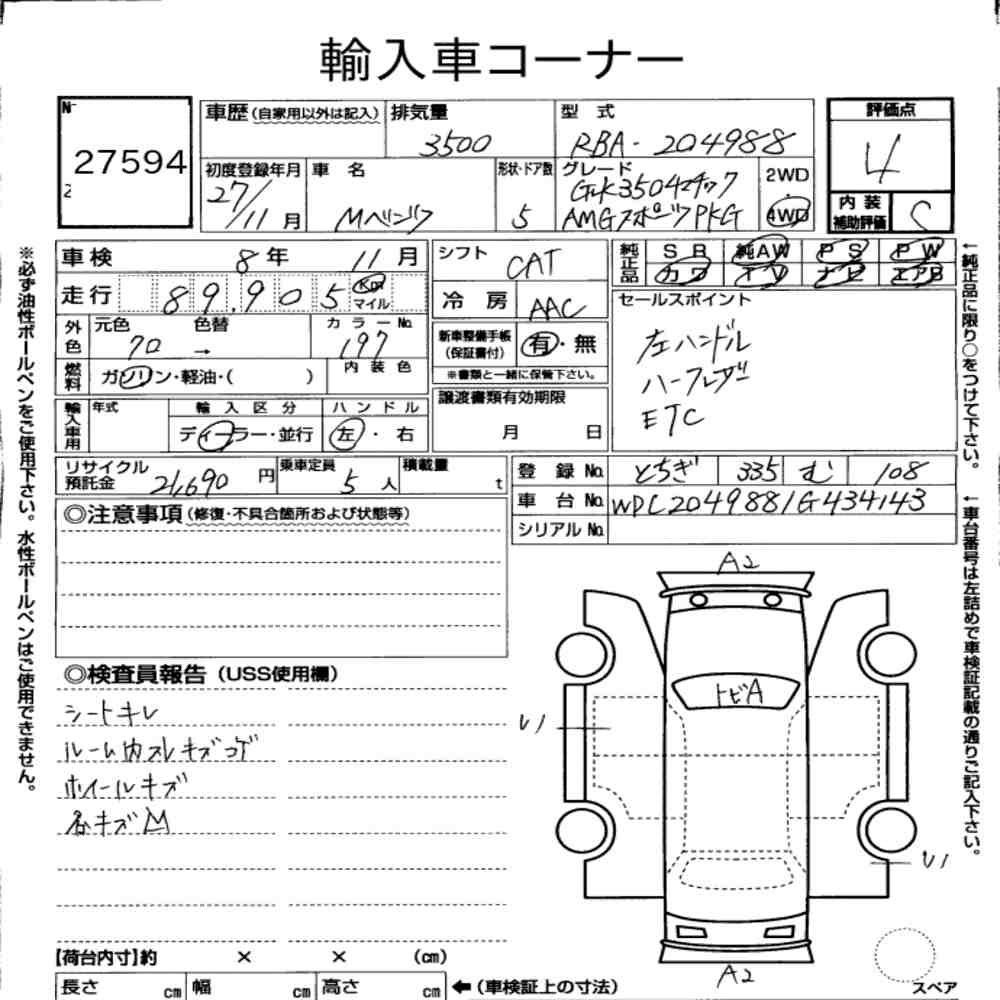 輸入車コーナー
No
27594
2
車歴(自家用以外は記入)
排気量
3500
型 式
RBA-204988
評価点
4
内装補助評価
C
初度登録年月
27/11月
車 名
Mベンツ
形状・ドア数
5
グレード
GLK3504マチック
AMGスポーツPKG
2WD
4WD
車検 8年 11月
走行 89,905 Km マイル
シフト CAT
冷房 AAC
純正品
SR 純AW PS PW
カワ TV ナビ エアB
外色
元色 70
色替 →
カラーNo. 197
燃料
ガソリン・軽油・( )
内装色
新車整備手帳
(保証書付)
有・無
※書類と一緒に保管下さい。
セールスポイント
左ハンドル
ハーフレザー
ETC
輸入車用
年式
輸入区分
ディーラー・並行
ハンドル
左・右
譲渡書類有効期限
月 日
リサイクル預託金 21,690円
乗車定員 5人
積載量 t
登録No. とちぎ 335 む 108
車台No. WDC2049881G434143
シリアルNo.
◎注意事項(修復・不具合箇所および状態等)
◎検査員報告(USS使用欄)
シートキレ
ルーム内スレキズコゲ
ホイールキズ
各キズ凹
A2
トビA
U1
U1
A2
スペア
【荷台内寸】約 × × (cm)
長さ cm 幅 cm 高さ cm ←(車検証上の寸法)
※必ず油性ボールペンをご使用下さい。水性ボールペンはご使用できません。
←純正品に限り○をつけて下さい。
←車台番号は左詰めで車検証記載の通りご記入下さい。